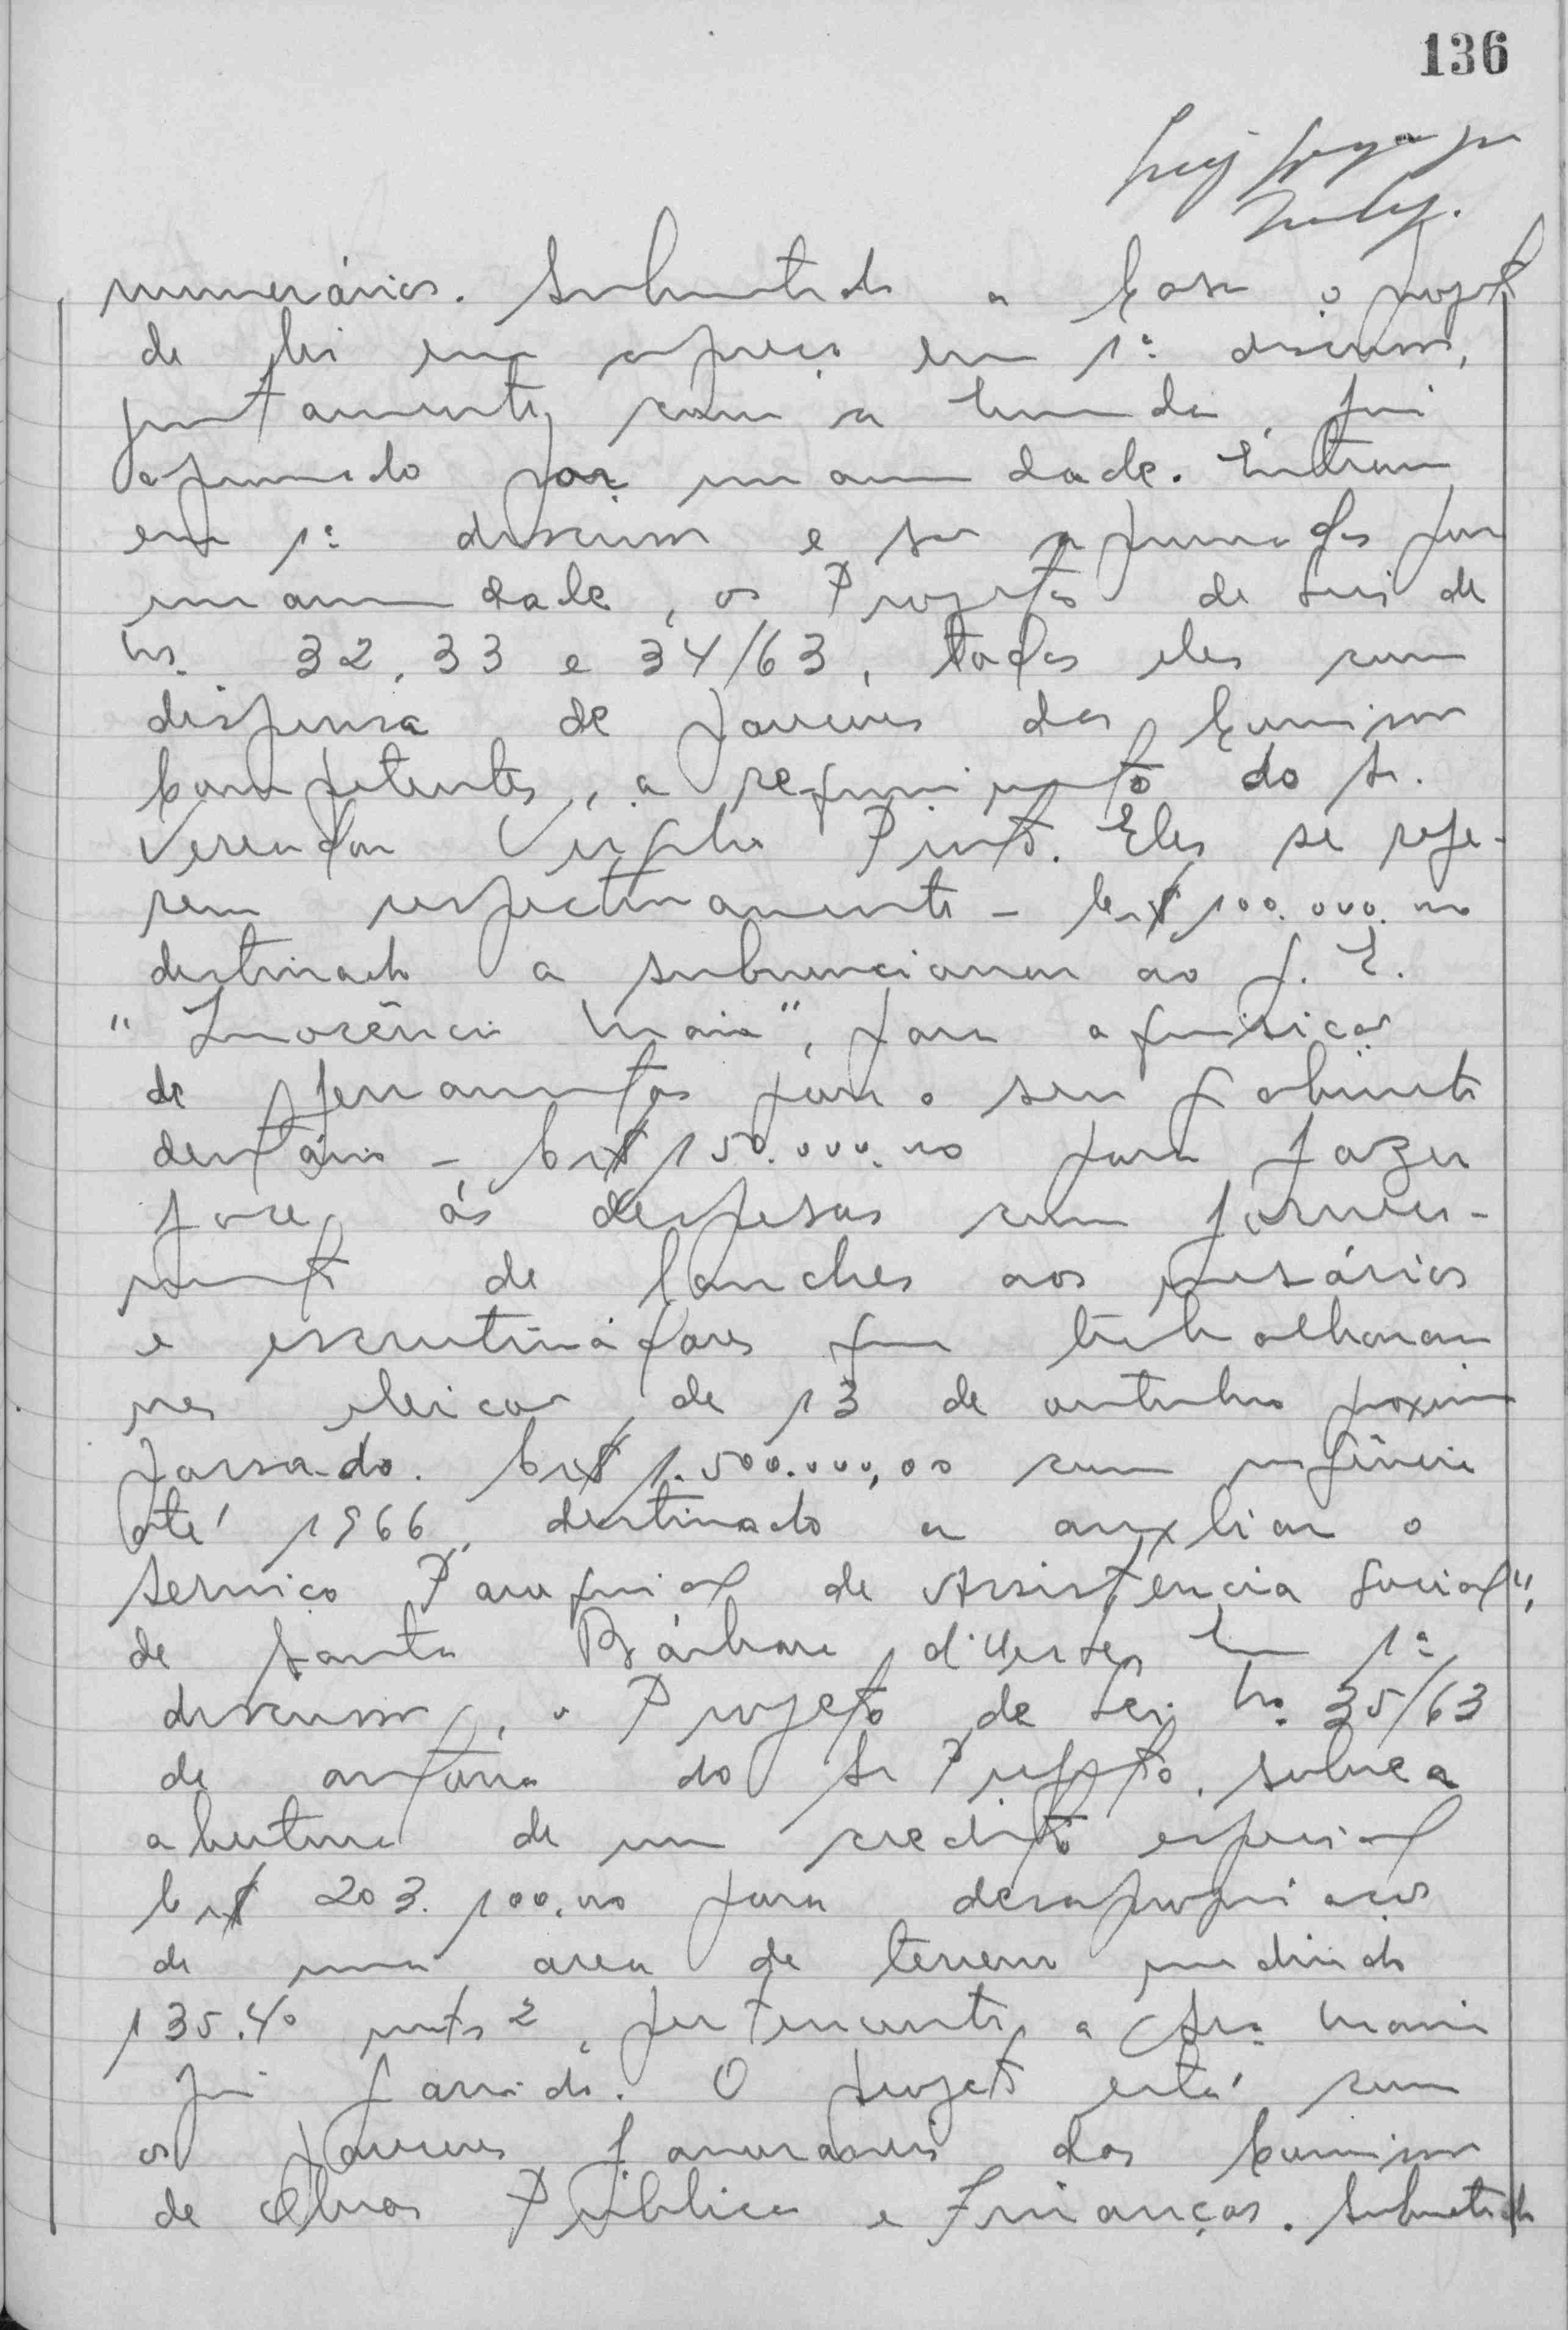 136
numerários. Submetido a Casa o projeto
de lei em apreço em 1ª discussão,
juntamente com a emenda, foi
aprovado por unanimidade. Entram
em 1ª discussão e são aprovados por
unanimidade, os Projetos de Leis de
Ns. 32, 33 e 34/63, todos eles com
dispensa de pareceres das Comissões
Competentes, a requerimento do Sr.
Vereador Virgilio Pinto. Eles se refe-
rem respectivamente - Cr$ 100.000.00
destinado a subvencionar ao G. E.
"Inocêncio Maia", para aquisição
de ferramentas para o seu gabinete
dentário - Cr$ 150.000.00 para fazer
face ás despesas com forneci-
mento de lanches aos mesários
e escrutinadores que trabalharam
nas eleições de 13 de outubro proximo
passado. Cr$ 1.500.000,00 com vigência
até 1966, destinado a auxliar o
Serviço Paroquial de Assistência Social",
de Santa Bárbara d'Oeste. Em 1ª
discussão, o Projeto de Lei No. 35/63
de autoria do Sr Prefeito, sobre a
abertura de um credito especial
Cr$ 203.100,00 para desapropriação
de uma area de terreno medindo
135.40 mts2, pertencente a Sra. Maria
Garrido. O projeto está com
os pareceres favoraveis das Comissões
de Obras Públicas e Finanças. Submetido